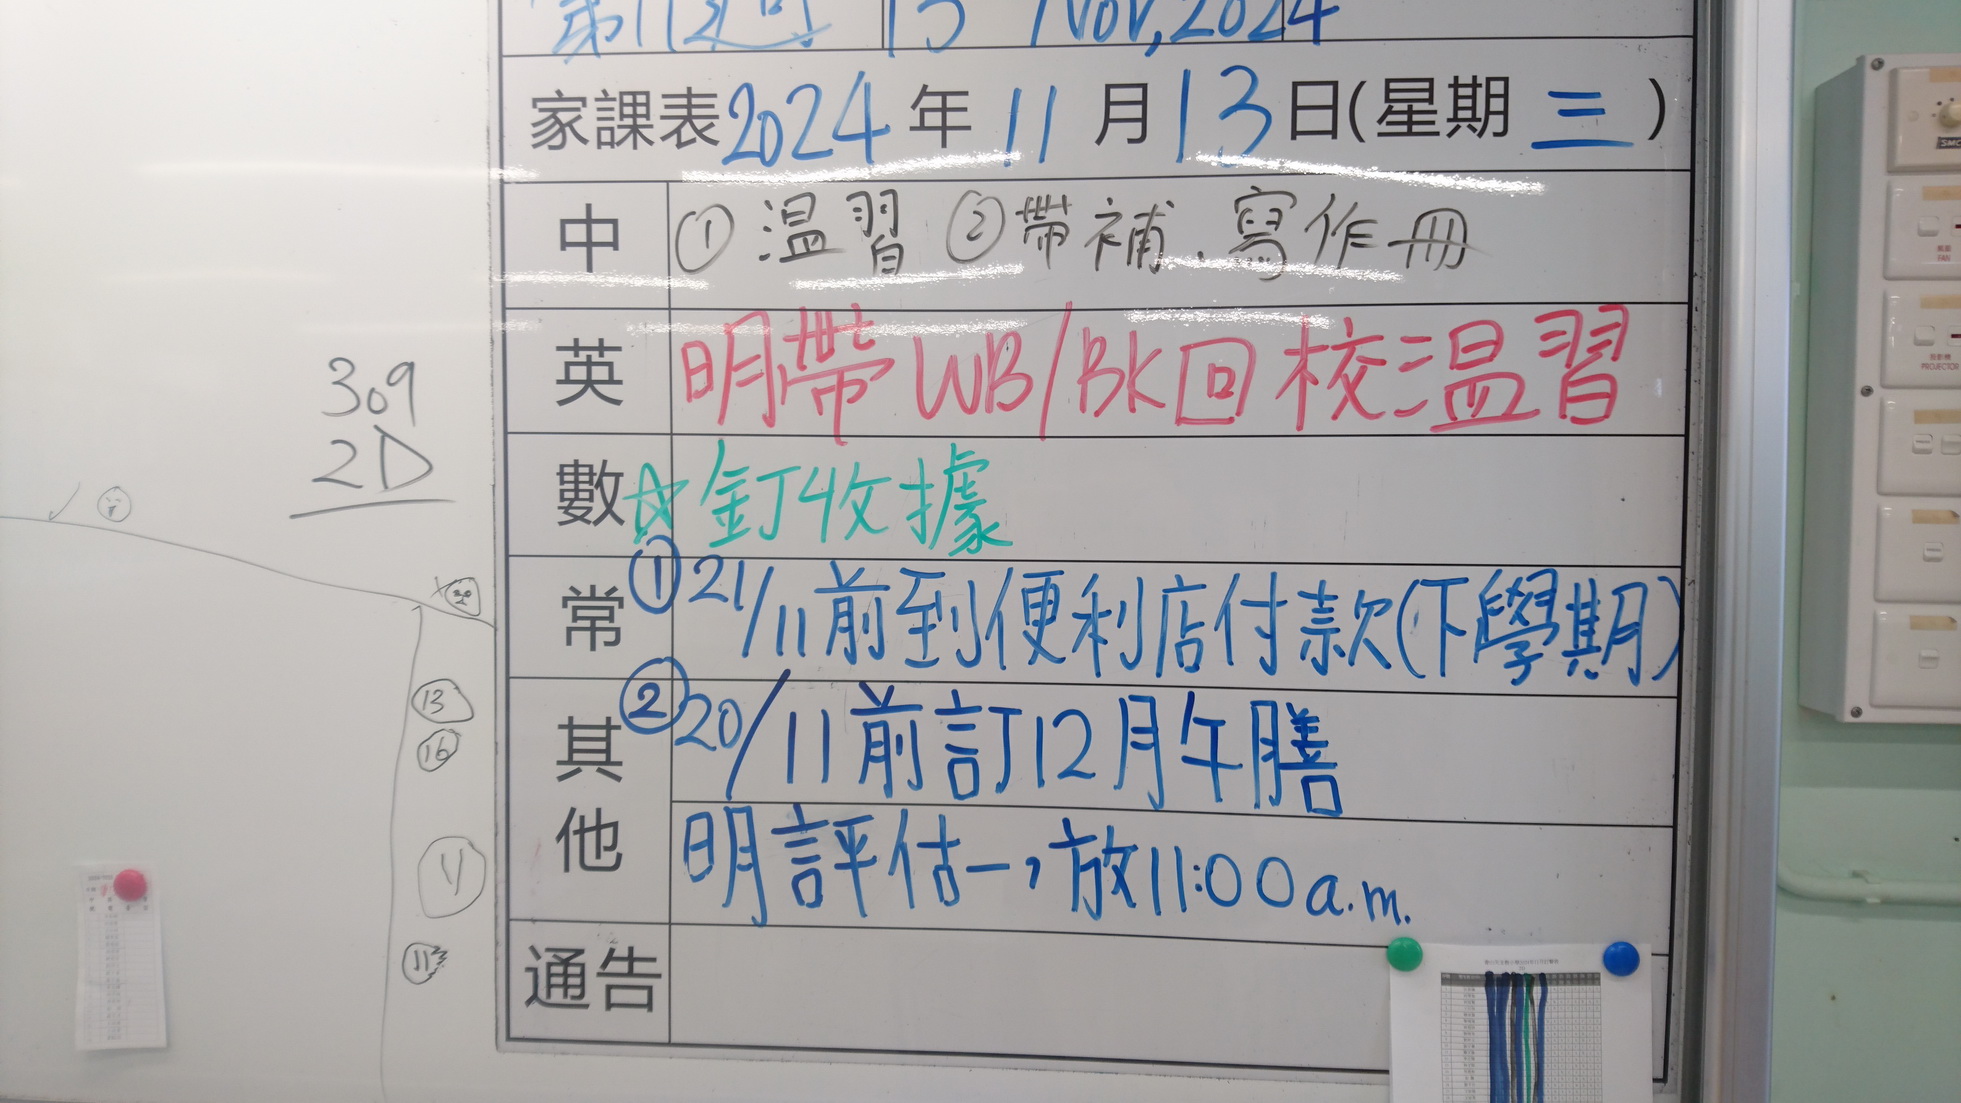 第11週 13 Nov, 2024
家課表2024年11月13日(星期三)
中 ①溫習 ②帶補、寫作冊
英 明帶WB/BK回校溫習
數 ☆釘收據
常 ①21/11前到便利店付款(下學期)
其他 ②20/11前訂12月午膳
明評估一,放11:00a.m.
通告
309
2D
13
16
11
FAN
PROJECTOR